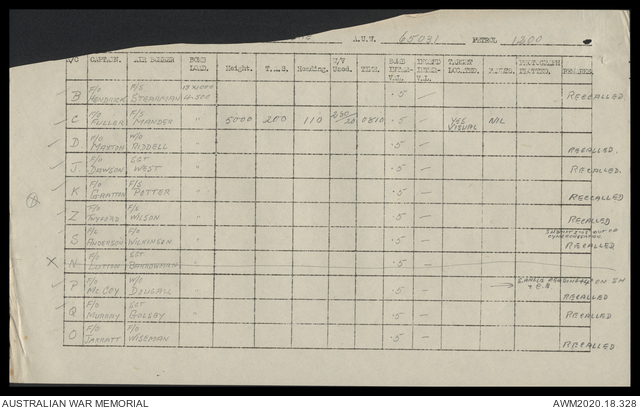 A.U.W. 65031 PETROL 1200
A/C CAPTAIN. AIR BOMBER BOMB LOAD. Height. T.A.S. Heading. W/V Used. TIME. BOMB INTER-VAL. TARGET LOCATED. PHOTOGRAPH REMARKS.
B F/O HENDRICK F/S STEARMAN 4-500 .5 — RECALLED
C F/O FULLER F/S MANDER " 5000 200 110 0810 .5 — YES VISUAL NIL
D F/O MAXTON W/O RIDDELL " .5 — RECALLED.
J F/O DAWSON SGT WEST " .5 — RECALLED.
K F/O GRATTON F/S POTTER " .5 — RECALLED
Z F/O TWYFORD F/S WILSON " .5 — RECALLED
S F/O ANDERSON F/O WILKINSON " .5 — RECALLED
X N SGT
P F/O MCCOY W/O DOUGALL " .5 — RECALLED
Q F/O MURRAY SGT GOLSBY " .5 — RECALLED
O F/O JARRATT F/O WISEMAN " .5 — RECALLED
AUSTRALIAN WAR MEMORIAL AWM2020.18.328